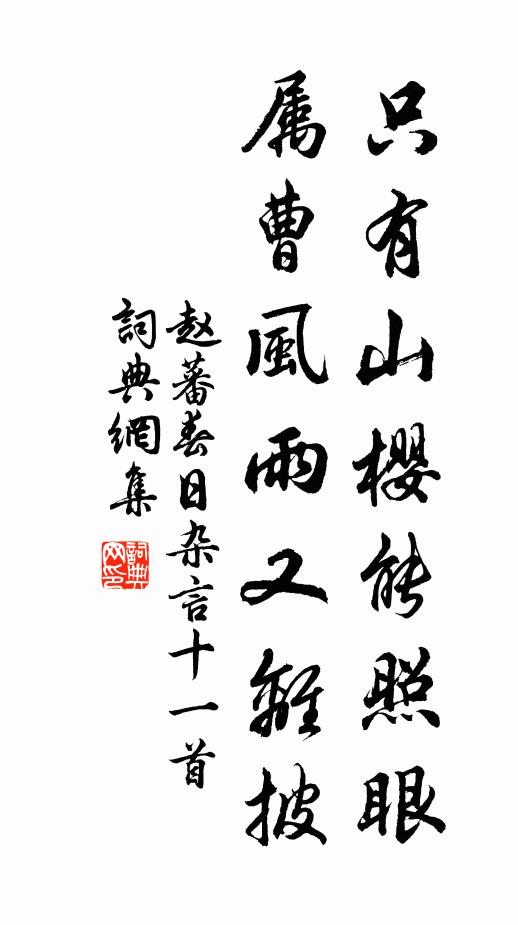 只有山櫻能照眼
属曹風雨又離披
赵蕃春日杂言十一首
詞典網集
詞典网印